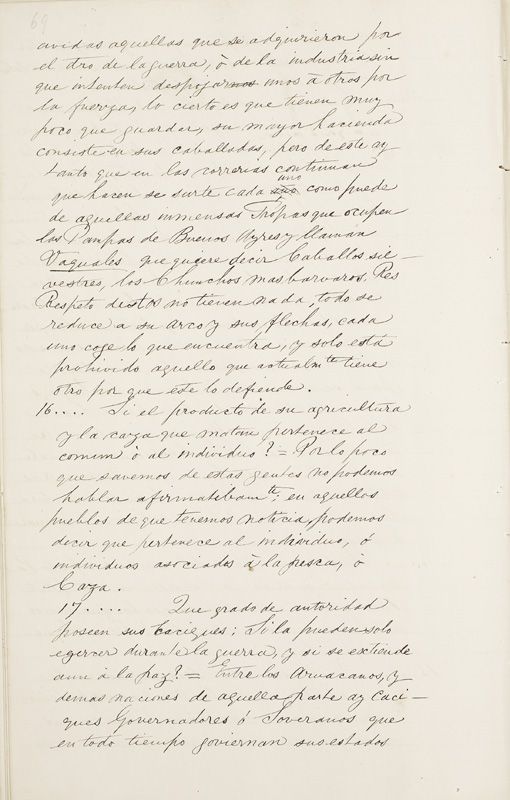 69
avidas aquellas que se adquirieron por
el dro de la guerra, ò de la industria sin
que intenten despojarnos unos à otros por
la fuerza, lo cierto es que tienen muy
poco que guardar, su mayor hacienda
consiste en sus caballadas, pero de este ay
tanto que en las correrias continuan
que hacen se surte cada uno como puede
de aquellas inmensas Tropas que ocupen
las Panpas de Buenos Ayres y llaman
Vaguales que quiere decir Caballos sil-
vestres, los Chunchos mas barvaros. Res
Respeto destos no tienen nada, todo se
reduce a su arco y sus flechas, cada
uno coge lo que encuentra, y solo está
prohivido aquello que actualmte tiene
otro por que este lo defiende.
16.... Si el producto de su agricultura
y la caza que matan pertenece al
comun ò al individuo? = Por lo poco
que savemos de estas gentes no podemos
hablar afirmatibamte: en aquellos
pueblos de que tenemos noticia, podemos
decir que pertenece al individuo, ò
individuos asociados à la pesca, ò
Caza.
17.... Que grado de autoridad
poseen sus Caciques: Si la pueden solo
egercer durante la guerra, y si se extiende
aun à la paz? = Entre los Arvacanos, y
demas naciones de aquella parte ay Caci-
ques Governadores ò Soveranos que
en todo tiempo goviernan sus estados